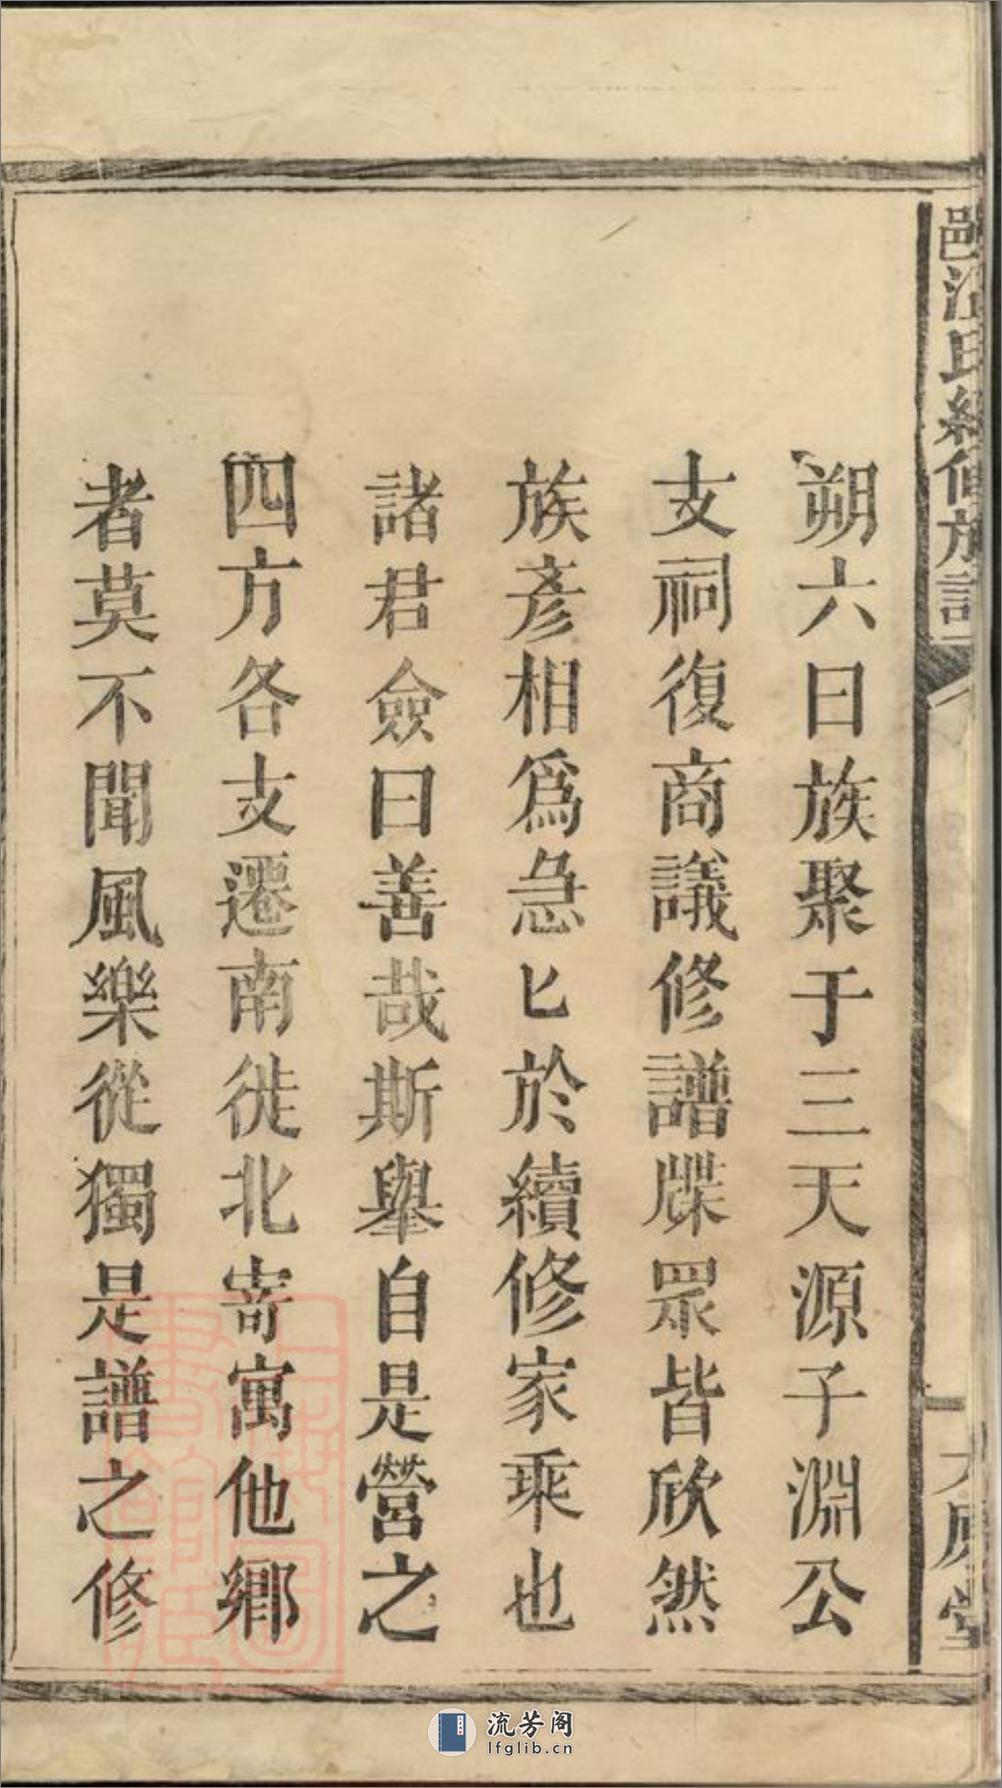 朔六日族聚于三天源子淵公
支祠復商議修譜牒眾皆欣然
族彥相爲急匕於續修家乘也
諸君僉曰善哉斯舉自是營之
四方各支遷南徙北寄寓他鄉
者莫不聞風樂從獨是譜之修
流芳阁
lfglib.cn